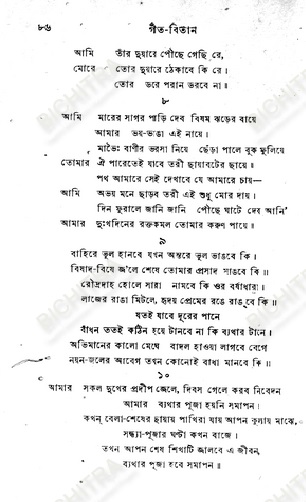 ৮৬ গীত-বিতান
আমি তার দুয়ারে পৌঁছে গেছি রে,
মোরে তোর দুয়ারে ঠেকাবে কি রে।
তোর ডরে পরান ডরবে না॥
৮
আমি মারের সাগর পাড়ি দেব বিষম ঝড়ের বায়ে
আমার ভয়-ভাঙা এই নায়ে।
মাভৈঃ বাণীর ভরসা নিয়ে ছেঁড়া পালে বুক ফুলিয়ে
তোমার ঐ পারেতেই যাবে তরী ছায়াবটের ছায়ে॥
পথ আমারে সেই দেখাবে যে আমারে চায়—
আমি অভয় মনে ছাড়ব তরী এই শুধু মোর দায়।
দিন ফুরালে জানি জানি পৌঁছে ঘাটে দেব আনি'
আমার দুঃখদিনের রক্তকমল তোমার করুণ পায়ে॥
৯
বাহিরে ভুল হানবে যখন অন্তরে ভুল ভাঙবে কি।
বিষাদ-বিষে জ্বলে শেষে তোমার প্রসাদ মাঙবে কি॥
রৌদ্রদাহ হোলে সারা নামবে কি ওর বর্ষাধারা।
লাজের রাঙা মিটলে, হৃদয় প্রেমের রঙে রাঙবে কি॥
যতই যাবে দূরের পানে
বাঁধন ততই কঠিন হয়ে টানবে না কি ব্যথার টানে।
অভিমানের কালো মেঘে বাদল হাওয়া লাগবে বেগে
নয়ন-জলের আবেগ তখন কোনোই বাধা মানবে কি॥
১০
আমার সকল দুখের প্রদীপ জ্বেলে, দিবস গেলে করব নিবেদন
আমার ব্যথার পূজা হয়নি সমাপন।
কখন্ বেলা-শেষের ছায়ায় পাখিরা যায় আপন কুলায় মাঝে,
সন্ধ্যা-পূজার ঘণ্টা কখন বাজে।
তখন আপন শেষ শিখাটি জ্বালবে এ জীবন,
ব্যথার পূজা হবে সমাপন॥